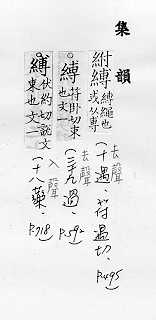 集韻
紨縛 縛繩也
或从尃
去聲
(十遇．符遇切．
P.495
縛 符卧切束
也文一
去聲
(三十九過．
P.592
縛 伏約切說文
束也文一
入聲
(十八藥．
P.718